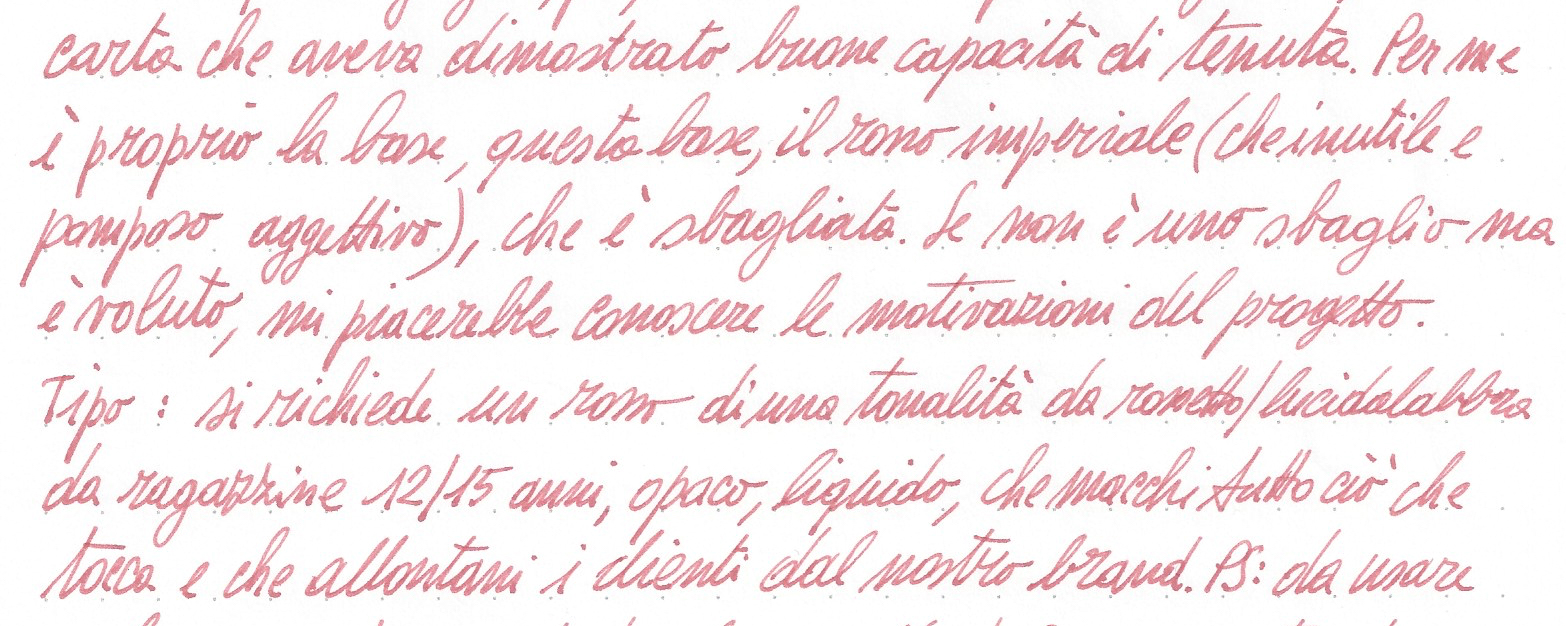 carta che aveva dimostrato buone capacità di tenuta. Per me
è proprio la base, questa base, il rosso imperiale (che inutile e
pomposo aggettivo), che è sbagliata. Se non è uno sbaglio ma
è voluto, mi piacerebbe conoscere le motivazioni del progetto.
Tipo: si richiede un rosso di una tonalità da rossetto/lucidalabbra
da ragazzine 12/15 anni, opaco, liquido, che macchi tutto ciò che
tocca e che allontani i clienti dal nostro brand. PS: da usare